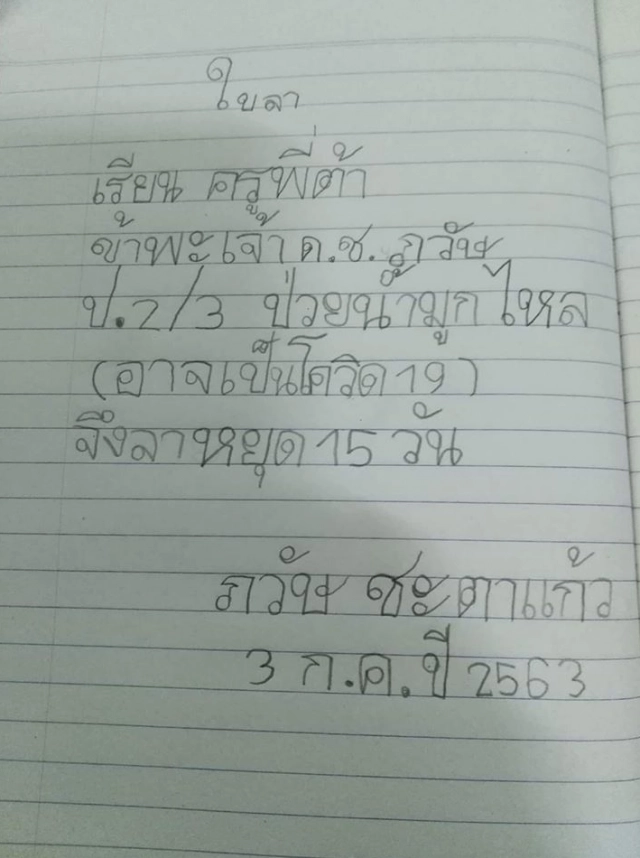 ใบลา
เรียน ครูพี่ต้า
ข้าพะเจ้า ด.ช. ภวัย
ป.2/3 ป่วยน้ำมูกไหล
(อาจเป็นโควิด 19)
จึงลาหยุด 15 วัน
ภวัย ชะตาแก้ว
3 ก.ค.ปี 2563